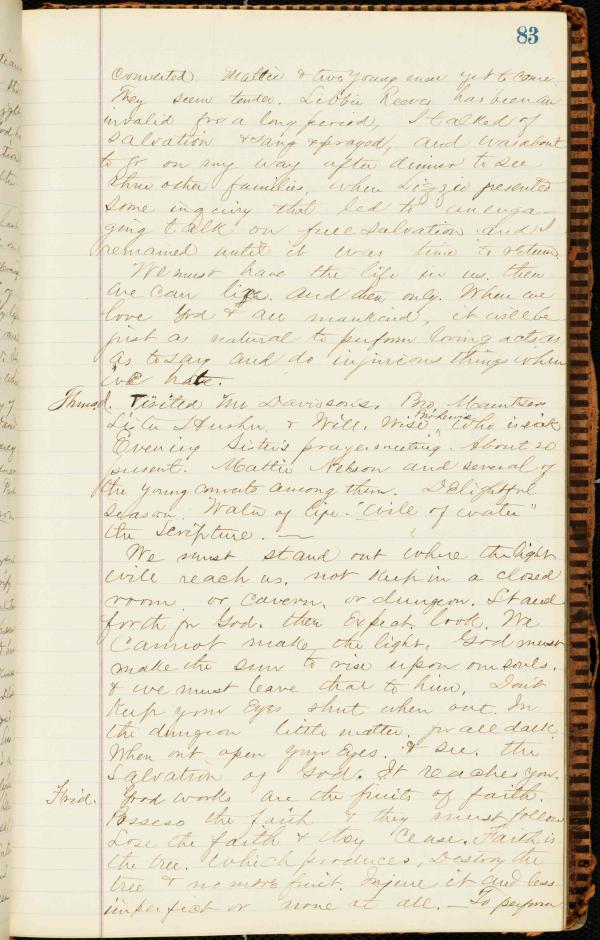 83
Converted. Mattie & two young men yet to come.
They seem tender. Libbie Reeves has been an
invalid for a long period, I talked of
salvation & sang & prayed, and was about
to go on my way after dinner to see
three other families, when Lizzie presented
some inquiry that led to an enga-
ging talk on free salvation and I
remained until it was time to return
We must have the life in us. then
we can live. and then only. When we
love God & all mankind, it will be
just as natural to perform loving acts as
as to say and do injurious things when
we hate.
Thursd. Visited Mr Davidsons. Bro.
& Will. Wise who is sick
Evening Sister's prayermeeting. About 20
present. Mattie Nelson and several of
the young converts among them. Delightful
season. Water of life - "Well of water"
the Scripture. —
We must stand out where the light
will reach us, not keep in a closed
room or cavern, or dungeon. Stand
forth for God. then expect, look. We
cannot make the light. God must
make the sun to rise upon our souls.
& we must leave that to him. Don't
keep your eyes shut when out. In
the dungeon little matter, for all dark.
When out open your eyes. & see. the
Salvation of God. It reaches you.
Frid. Good works are the fruits of faith.
Possess the faith & they must follow
Lose the faith & they cease. Faith is
the tree. which produces, Destroy the
tree & no more fruit. Injure it and less
imperfect or none at all. — To perform